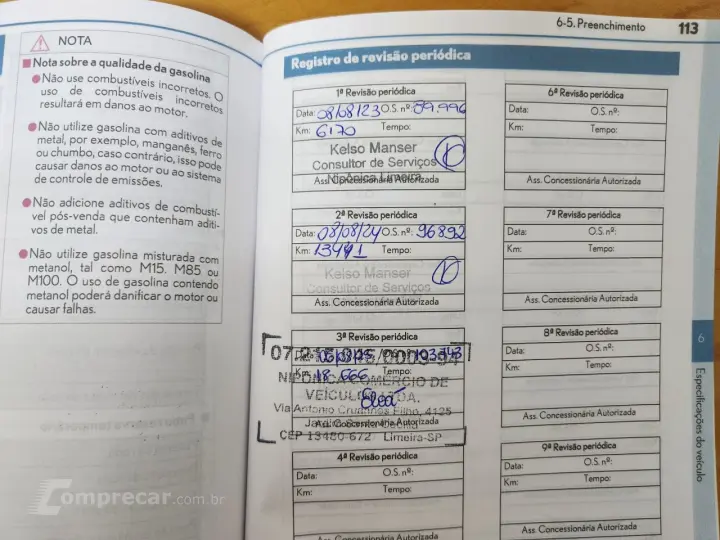 NOTA
Nota sobre a qualidade da gasolina
Não use combustíveis incorretos. O
uso de combustíveis incorretos
resultará em danos ao motor.
Não utilize gasolina com aditivos de
metal, por exemplo, manganês, ferro
ou chumbo, caso contrário, isso pode
causar danos ao motor ou ao sistema
de controle de emissões.
Não adicione aditivos de combustí-
vel pós-venda que contenham aditi-
vos de metal.
Não utilize gasolina misturada com
metanol, tal como M15. M85 ou
M100. O uso de gasolina contendo
metanol poderá danificar o motor ou
causar falhas.
Comprecar.com.br
6-5. Preenchimento 113
Registro de revisão periódica
1ª Revisão periódica
Data: 08/08/23 O.S. nº: 89.996
Km: 6170 Tempo:
Kelso Manser
Consultor de Serviços
Nipônica Limeira
Ass. Concessionária Autorizada
2ª Revisão periódica
Data: 08/08/24 O.S. nº: 96892
Km: 13441 Tempo:
Kelso Manser
Consultor de Serviços
Ass. Concessionária Autorizada
3ª Revisão periódica
Km: 18.666
NIPÔNICA COMÉRCIO DE
VEÍCULOS LTDA.
Ass. Concessionária Autorizada
CEP 13480-672 Limeira-SP
4ª Revisão periódica
Data: O.S. nº:
Km: Tempo:
Ass. Concessionária Autorizada
6ª Revisão periódica
Data: O.S. nº:
Km: Tempo:
Ass. Concessionária Autorizada
7ª Revisão periódica
Data: O.S. nº:
Km: Tempo:
Ass. Concessionária Autorizada
8ª Revisão periódica
Data: O.S. nº:
Km: Tempo:
Ass. Concessionária Autorizada
9ª Revisão periódica
Data: O.S. nº:
Km: Tempo:
Ass. Concessionária Autorizada
6
Especificações do veículo